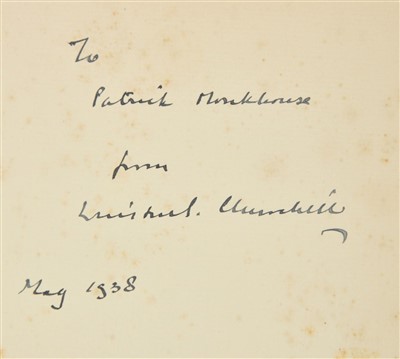 To
Patrick Monkhouse
from
Winston S. Churchill
May 1938